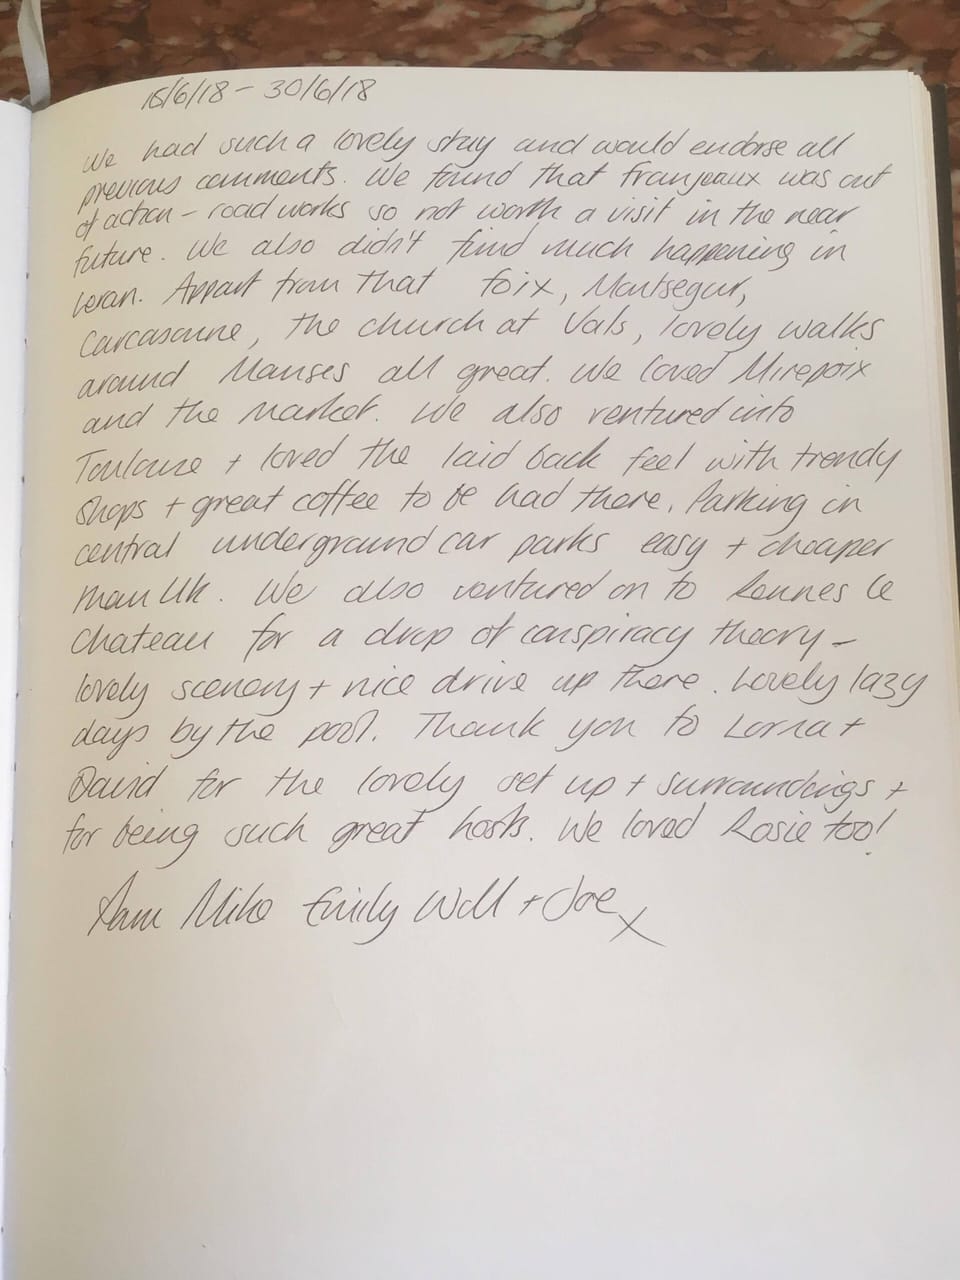 16/6/18 - 30/6/18
We had such a lovely stay and would endorse all
previous comments. We found that Franjeaux was out
of action - road works so not worth a visit in the near
future. We also didn't find much happening in
Leran. Appart from that Foix, Montsegur,
Carcasonne, the church at Vals, lovely walks
around Manses all great. We loved Mirepoix
and the market. We also ventured into
Toulouse + loved the laid back feel with trendy
shops + great coffee to be had there. Parking in
central underground car parks easy + cheaper
than Uk. We also ventured on to Rennes le
Chateau for a drop of conspiracy theory -
lovely scenery + nice drive up there. Lovely lazy
days by the pool. Thank you to Lorna +
David for the lovely set up + surroundings +
for being such great hosts. We loved Rosie too!
Mike Emily Will + Joe x